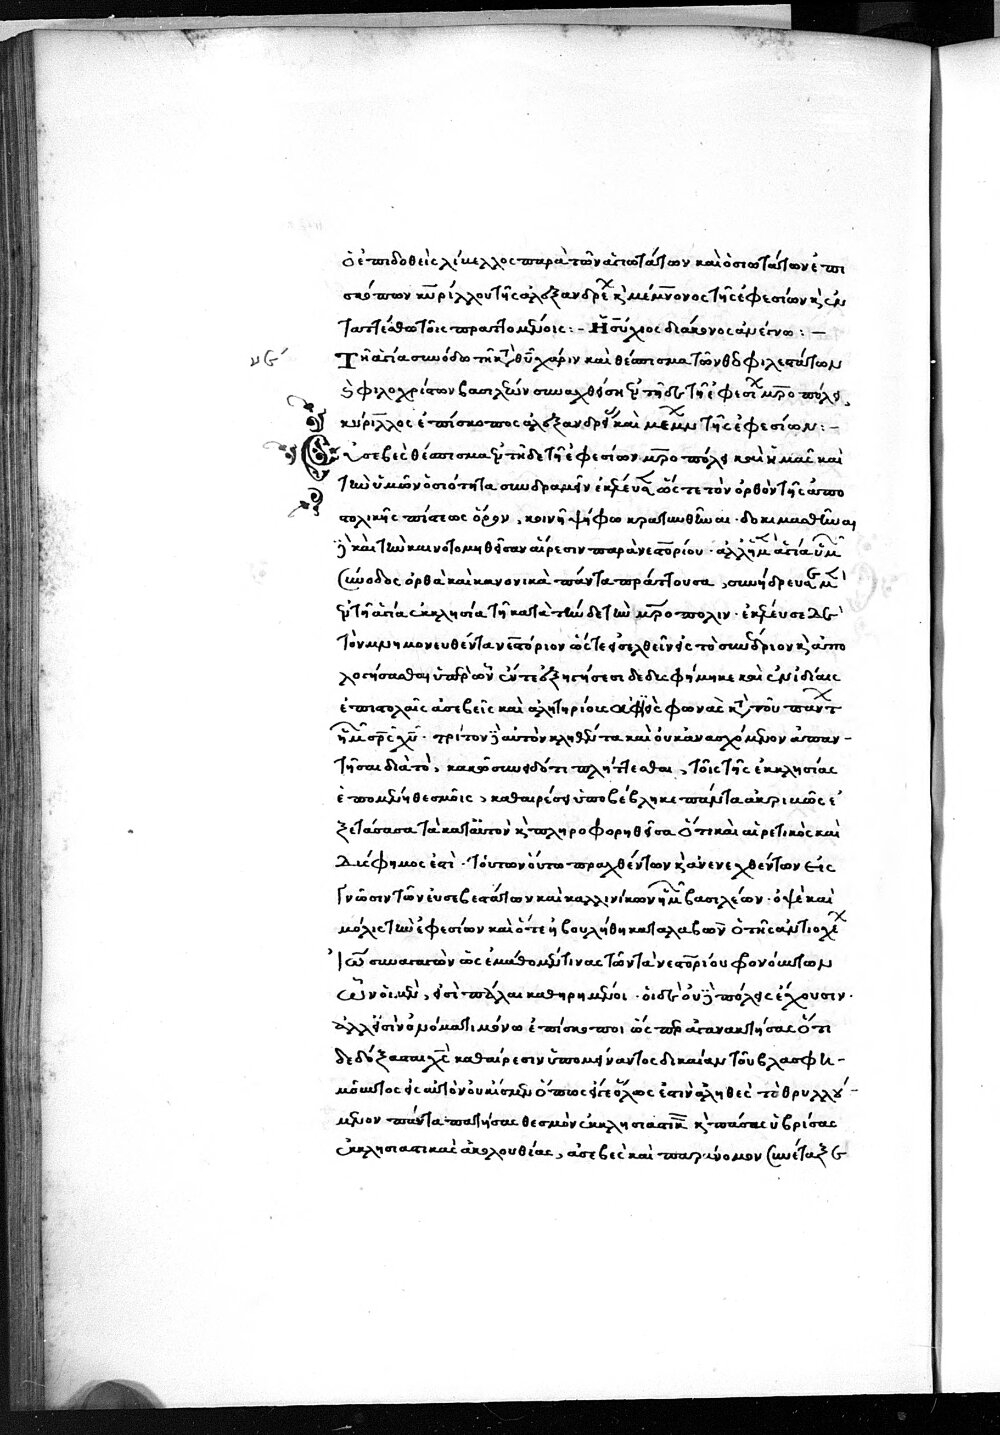 ὁ ἐπιδοθεὶς λίβελλος παρὰ τῶν ἁγιωτάτων καὶ ὁσιωτάτων ἐπι
σκόπων κυρίλλου τῆς ἀλεξανδρεχ κ(αὶ) μέμνονος τῆς ἐφεσίων κ(αὶ) ἐν
ταττέσθω τοῖς πραττομένοις :- Ἡσύχιος διάκονος ἀνέγνω :-
νϛʹ
Τῆ ἁγία συνόδω τῆ κ(α)τ(ὰ) θ(εο)ῦ χάριν καὶ θέσπισμα τῶν θεοφιλεστάτων
κ(αὶ) φιλοχρίστων βασιλέων συναχθείση ἐν τῆδε τῆ ἐφεσί μρο πόλει,
κύριλλος ἐπίσκοπος ἀλεξανδρεί καὶ μέμν τῆς ἐφεσίων :-
Εὐσεβὲς θέσπισμα ἐν τῆδε τῆ ἐφεσίων μρο πόλει καὶ ἡμᾶς καὶ
τὴν ὑμῶν ὁσιότητα συνδραμεῖν ἐκέλευσεν ὥστε τὸν ὀρθὸν τῆς ἀπο
στολικῆς πίστεως ὅρον, κοινῆ ψήφω κρατυνθῆναι · δοκιμασθῆναι
δὲ καὶ τὴν καινοτομηθεῖσαν αἵρεσιν παρὰ νεστορίου · ἀλλ' ἡ μ ἁγία ὑμ
σύνοδος ὀρθὰ καὶ κανονικὰ πάντα πράττουσα, συνήδρευσε μ
ἐν τῆ ἁγία ἐκκλησία τῆ κατὰ τήνδε τὴν μρο πολιν · ἐκέλευσε δὲ
τὸν μνημονευθέντα νεστόριον ὥστε εἰσελθεῖν εἰς τὸ συνέδριον κ(αὶ) ἀπο
λογήσασθαι ὑπὲρ ὧν ἐν τε ἐξηγήσεσι δεδυσφήμηκε καὶ ἐν ἰδίαις
ἐπιστολαῖς ἀσεβεῖς καὶ ἀλητηρίους ἀφεὶς φωνὰς κ(α)τ(ὰ) τοῦ παντ
ἡμ σρς χυ · τρίτον δὲ αὐτὸν κληθέντα καὶ οὐκ ἀνασχόμενον ἀπαν-
τῆσαι διὰ τὸ, κακῶ συνειδότι πλήττεσθαι, τοῖς τῆς ἐκκλησίας
ἑπομένη θεσμοῖς, καθαιρέσει ὑποβέβληκε πάντα ἀκριβῶς ἐ
ξετάσασα τὰ κατ' αὐτὸν κ(αὶ) πληροφορηθεῖσα ὅτι καὶ αἱρετικὸς καὶ
δύσφημος ἐστὶ · τούτων οὕτω πραχθέντων κ(αὶ) ἀνενεχθέντων εἰς
γνῶσιν τῶν εὐσεβεστάτων καὶ καλλινίκων ἡμ βασιλέων · ὀψὲ καὶ
μόλις τὴν ἐφεσίων καὶ ὅτε ἠβουλήθη καταλαβὼν ὁ τῆς ἀντιοχε
Ἰω συναγαγὼν ὡς ἐμάθομέν τινας τῶν τὰ νεστορίου φρονούντων
ὧν οἱ μὲν, εἰσὶ πάλαι καθηρημένοι · οἱ δὲ οὐδὲ πόλεις ἔχουσιν ·
ἀλλ' εἰσὶν ὀνόματι μόνω ἐπίσκοποι ὥσπερ ἀγανακτήσας ὅτι
δεδόξασται χς καθαίρεσιν ὑπομείναντος δικαίαν τοῦ βλασφη-
μοῦντος εἰς αὐτὸν οὐκ ἴσμεν ὅπως εἴτε ὅλως ἐστὶν ἀληθὲς τὸ θρυλλού-
μενον πάντα πατήσας θεσμὸν ἐκκλησιαστικ κ(αὶ) πάσας ὑβρίσας
ἐκκλησιαστικὰς ἀκολουθίας, ἀσεβὲς καὶ παράνομον συνέταξε